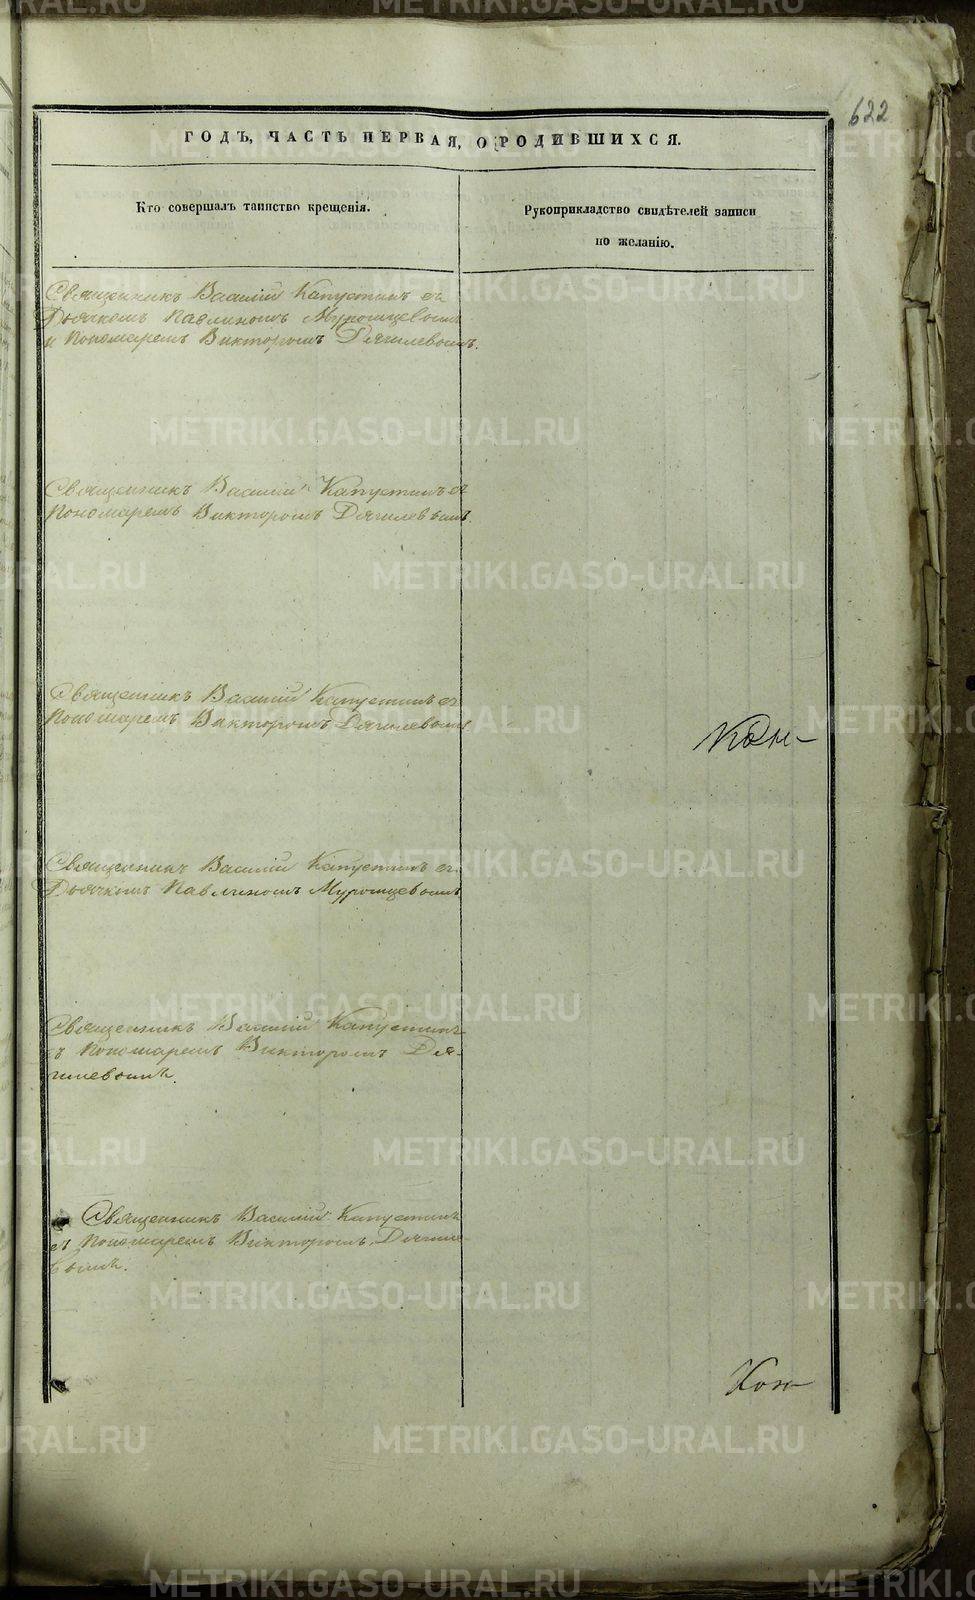 622
ГОДЪ, ЧАСТЬ ПЕРВАЯ, О РОДИВШИХСЯ.
Кто совершалъ таинство крещенія.
Рукоприкладство свидѣтелей записи
по желанію.
Священникъ Василій Капустинъ съ
Дьячкомъ Павлиномъ Муромцевымъ
и Пономаремъ Викторомъ Дягилевымъ.
Священникъ Василій Капустинъ съ
Пономаремъ Викторомъ Дягилевымъ
Священникъ Василій Капустинъ съ
Пономаремъ Викторомъ Дягилевымъ
Священникъ Василій Капустинъ съ
Дьячкомъ Павлиномъ Муромцевымъ
Священникъ Василій Капустинъ
съ Пономаремъ Викторомъ Дя-
гилевымъ.
Священникъ Василій Капустинъ
съ Пономаремъ Викторомъ Дягиле
вымъ.
METRIKI.GASO-URAL.RU